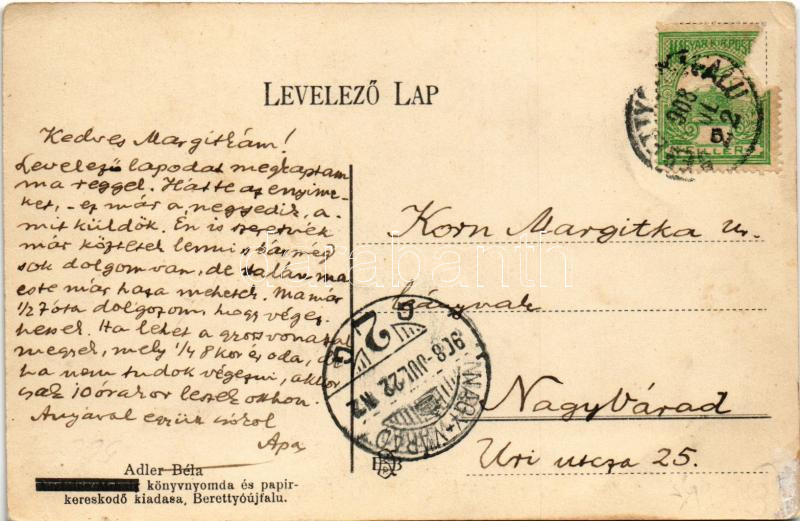 LEVELEZŐ LAP
Kedves Margitkám!
Levelező lapodat megkaptam
ma reggel. Hátte az enyime-
ket, - ez már a negyedik, a-
mit küldök. Én is szeretnék
már köztetek lenni, bár még
sok dolgom van, de talán ma
este már haza mehetek. Ma már
1/2 7 óta dolgozom, hogy végez-
hessek. Ha lehet a gyorsvonattal
megyek, mely 1/4 8 kor ér oda, de
ha nem tudok végezni, akkor
csak 10 órakor leszek otthon.
Anyával együtt csókol
Apa
Korn Margitka u.
Nagyvárad
Uri utcza 25.
MAGYAR KIR. POSTA
908
NAGY-VÁRAD
908 JUL 22
2
G
Adler Béla
könyvnyomda és papir-
kereskedő kiadása, Berettyóújfalu.
darabanth